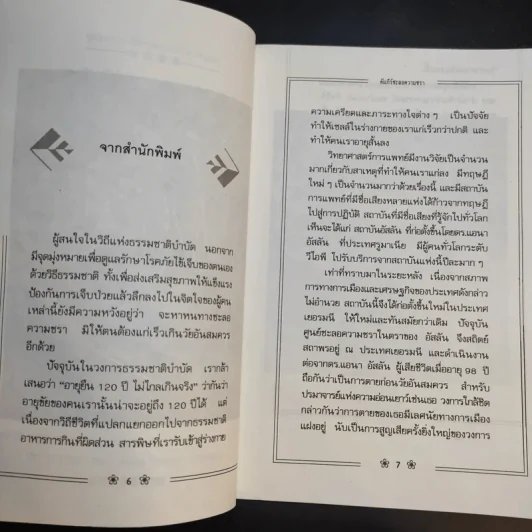 จากสำนักพิมพ์
ผู้สนใจในวิถีแห่งธรรมชาติบำบัด นอกจาก
มีจุดมุ่งหมายเพื่อดูแลรักษาโรคภัยไข้เจ็บของตนเอง
ด้วยวิธีธรรมชาติ ทั้งเพื่อส่งเสริมสุขภาพให้แข็งแรง
ป้องกันการเจ็บป่วยแล้วลึกลงไปในจิตใจของผู้คน
เหล่านี้ยังมีความหวังอยู่ว่า จะหาหนทางชะลอ
ความชรา มิให้ตนต้องแก่เร็วเกินวัยอันสมควร
อีกด้วย
ปัจจุบันในวงการธรรมชาติบำบัด เรากล้า
เสนอว่า "อายุยืน 120 ปี ไม่ไกลเกินจริง" ว่ากันว่า
อายุขัยของคนเรานั้นน่าจะอยู่ถึง 120 ปีได้ แต่
เนื่องจากวิถีชีวิตที่แปลกแยกออกไปจากธรรมชาติ
อาหารการกินที่ผิดส่วน สารพิษที่เรารับเข้าสู่ร่างกาย
6
คัมภีร์ชะลอความชรา
ความเครียดและภาระทางใจต่าง ๆ เป็นปัจจัย
ทำให้เซลล์ในร่างกายของเราแก่เร็วกว่าปกติ และ
ทำให้คนเราอายุสั้นลง
วิทยาศาสตร์การแพทย์มีงานวิจัยเป็นจำนวน
มากเกี่ยวกับสาเหตุที่ทำให้คนเราแก่ลง มีทฤษฎี
ใหม่ ๆ เป็นจำนวนมากว่าด้วยเรื่องนี้ และมีสถาบัน
การแพทย์ที่มีชื่อเสียงหลายแห่งได้ก้าวจากทฤษฎี
ไปสู่การปฏิบัติ สถาบันที่มีชื่อเสียงที่รู้จักไปทั่วโลก
เห็นจะได้แก่ สถาบันอัสลัน ที่ก่อตั้งขึ้นโดยดร.แอนา
อัสลัน ที่ประเทศรูมาเนีย มีผู้คนทั่วโลกระดับ
วีไอพี ไปรับบริการจากสถาบันแห่งนี้ปีละมาก ๆ
เท่าที่ทราบมาในระยะหลัง เนื่องจากสภาพ
การทางการเมืองและเศรษฐกิจของประเทศดังกล่าว
ไม่อำนวย สถาบันนี้จึงได้ก่อตั้งขึ้นใหม่ในประเทศ
เยอรมนี ให้ใหม่และทันสมัยกว่าเดิม ปัจจุบัน
ศูนย์ชะลอความชราในตราของ อัสลัน จึงสถิตย์
สถาพรอยู่ ณ ประเทศเยอรมนี และดำเนินงาน
ต่อจากดร.แอนา อัสลัน ผู้เสียชีวิตเมื่ออายุ 98 ปี
ถือกันว่าเป็นการตายก่อนวัยอันสมควร สำหรับ
ปรมาจารย์แห่งความอ่อนเยาว์เช่นเธอ วงการใกล้ชิด
กล่าวกันว่าการตายของเธอมีเลศนัยทางการเมือง
แฝงอยู่ นับเป็นการสูญเสียครั้งยิ่งใหญ่ของวงการ
7